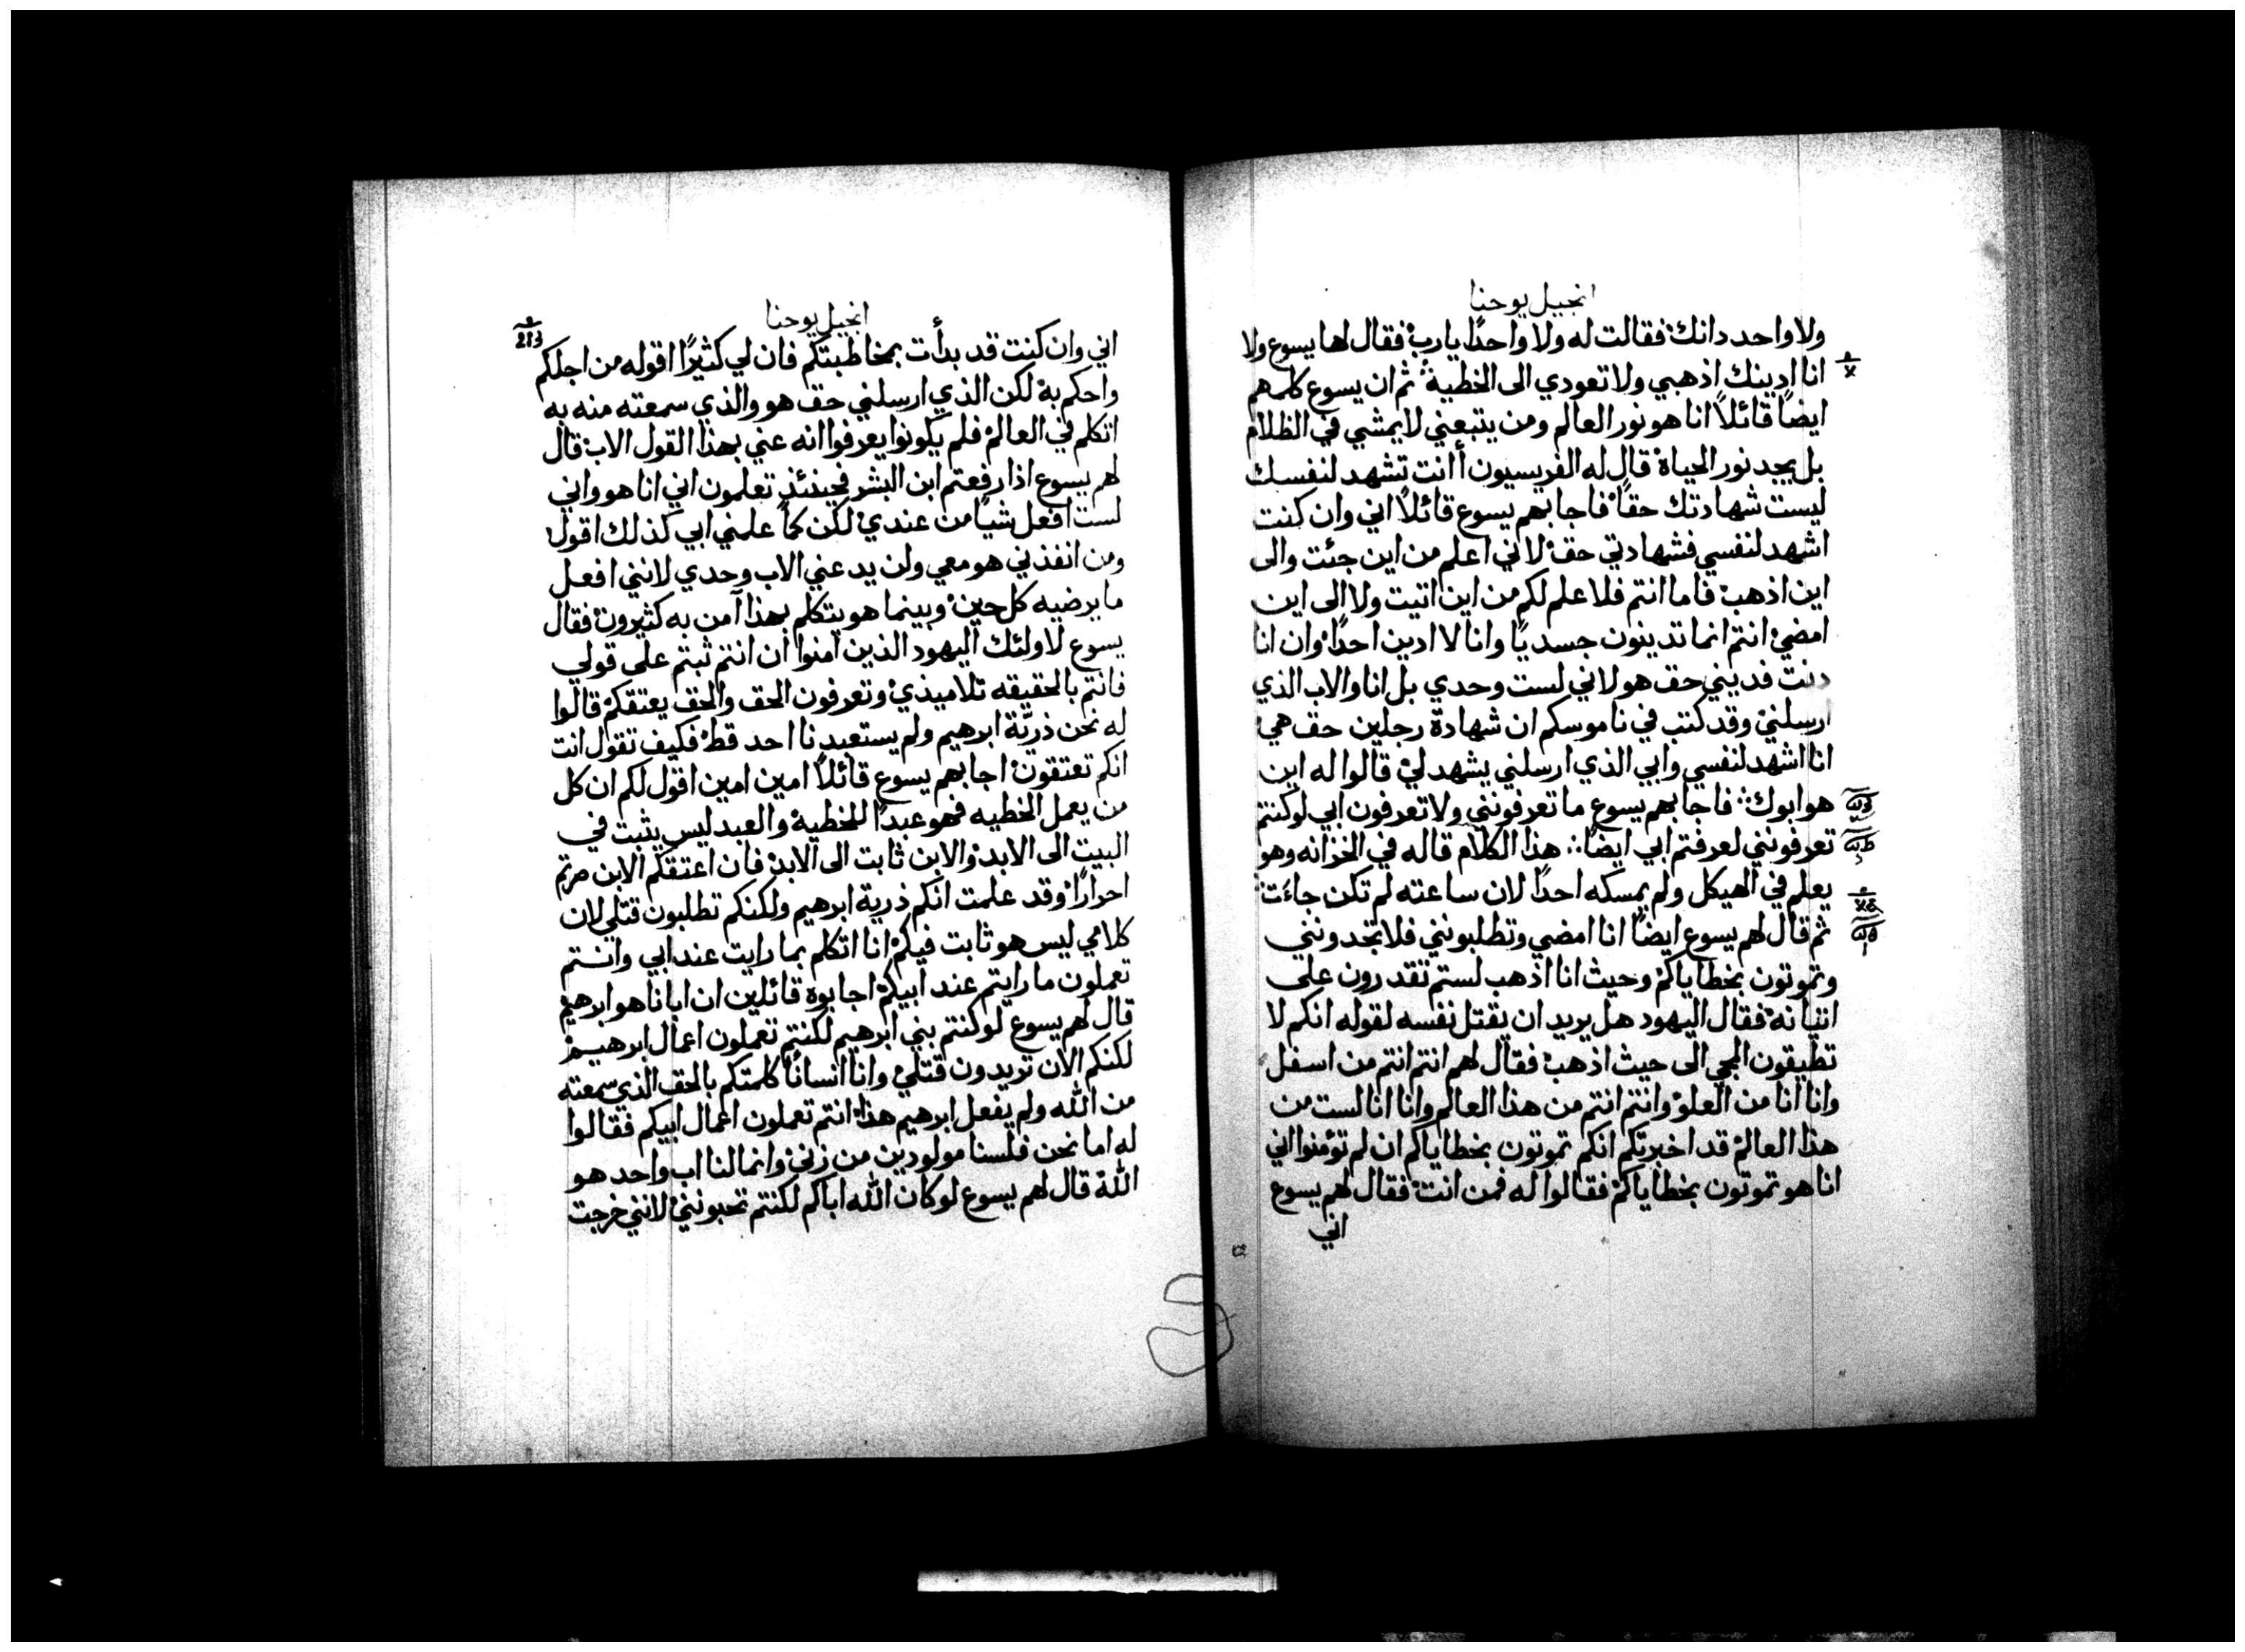 انجيل يوحنا
ولا واحد دانك فقالت له ولا واحدًا يارب فقال لها يسوع ولا
انا ادينك اذهبي ولا تعودي الى الخطية ثم ان يسوع كلمهم
ايضًا قائلاً انا هو نور العالم ومن يتبعني لا يمشي في الظلام
بل يجد نور الحياة قال له الفريسيون أانت تشهد لنفسك
ليست شهادتك حقًا فاجابهم يسوع قائلاً اني وان كنت
اشهد لنفسي فشهادتي حق لاني اعلم من اين جئت والى
اين اذهب فاما انتم فلا علم لكم من اين اتيت ولا الى اين
امضي انتم انما تدينون جسديًا وانا لا ادين احدًا وان انا
دنت فديني حق هو لاني لست وحدي بل انا والاب الذي
ارسلني وقد كتب في ناموسكم ان شهادة رجلين حق هي
انا اشهد لنفسي وابي الذي ارسلني يشهد لي قالوا له اين
هو ابوك فاجابهم يسوع ما تعرفونني ولا تعرفون ابي لو كنتم
تعرفونني لعرفتم ابي ايضًا هذا الكلام قاله في الخزانه وهو
يعلم في الهيكل ولم يمسكه احدًا لان ساعته لم تكن جاءت
ثم قال لهم يسوع ايضًا انا امضي وتطلبونني فلا تجدونني
وتموتون بخطاياكم وحيث انا اذهب لستم تقدرون على
اتيانه فقال اليهود هل يريد ان يقتل نفسه لقوله انكم لا
تطيقون المجي الى حيث اذهب فقال لهم انتم انتم من اسفل
وانا انا من العلو وانتم انتم من هذا العالم وانا انا لست من
هذا العالم قد اخبرتكم انكم تموتون بخطاياكم ان لم تؤمنوا اني
انا هو تموتون بخطاياكم فقالوا له فمن انت فقال لهم يسوع
اني
انجيل يوحنا
213
اني وان كنت قد بدأت بمخاطبتكم فان لي كثيرًا اقوله من اجلكم
واحكم به لكن الذي ارسلني حق هو والذي سمعته منه به
اتكلم في العالم فلم يكونوا يعرفوا انه عني بهذا القول الاب قال
لهم يسوع اذا رفعتم ابن البشر فحينئذ تعلمون اني انا هو واني
لست افعل شيًا من عندي لكن كما علمني ابي كذلك اقول
ومن انفذني هو معي ولن يدعني الاب وحدي لانني افعل
ما يرضيه كل حين وبينما هو يتكلم بهذا آمن به كثيرون فقال
يسوع لاولئك اليهود الذين آمنوا ان انتم ثبتم على قولي
فانتم بالحقيقه تلاميذي وتعرفون الحق والحق يعتقكم قالوا
له نحن ذريّة ابرهيم ولم يستعبدنا احد قط فكيف تقول انت
انكم تعتقون اجابهم يسوع قائلاً امين امين اقول لكم ان كل
من يعمل الخطيه فهو عبدًا للخطية والعبد ليس يثبت في
البيت الى الابد والابن ثابت الى الابد فان اعتقكم الابن صرتم
احرارًا وقد علمت انكم ذرية ابرهيم ولكنكم تطلبون قتلي لان
كلامي ليس هو ثابت فيكم انا اتكلم بما رايت عند ابي وانتم
تعملون ما رايتم عند ابيكم اجابوه قائلين ان ابانا هو ابرهيم
قال لهم يسوع لو كنتم بني ابرهيم لكنتم تعملون اعمال ابرهيم
لكنكم الان تريدون قتلي وانا انسانًا كلمتكم بالحق الذي سمعته
من الله ولم يفعل ابرهيم هذا انتم تعملون اعمال ابيكم فقالوا
له اما نحن فلسنا مولودين من زنى وانما لنا اب واحد هو
الله قال لهم يسوع لو كان الله اباكم لكنتم تحبونني لانني خرجت